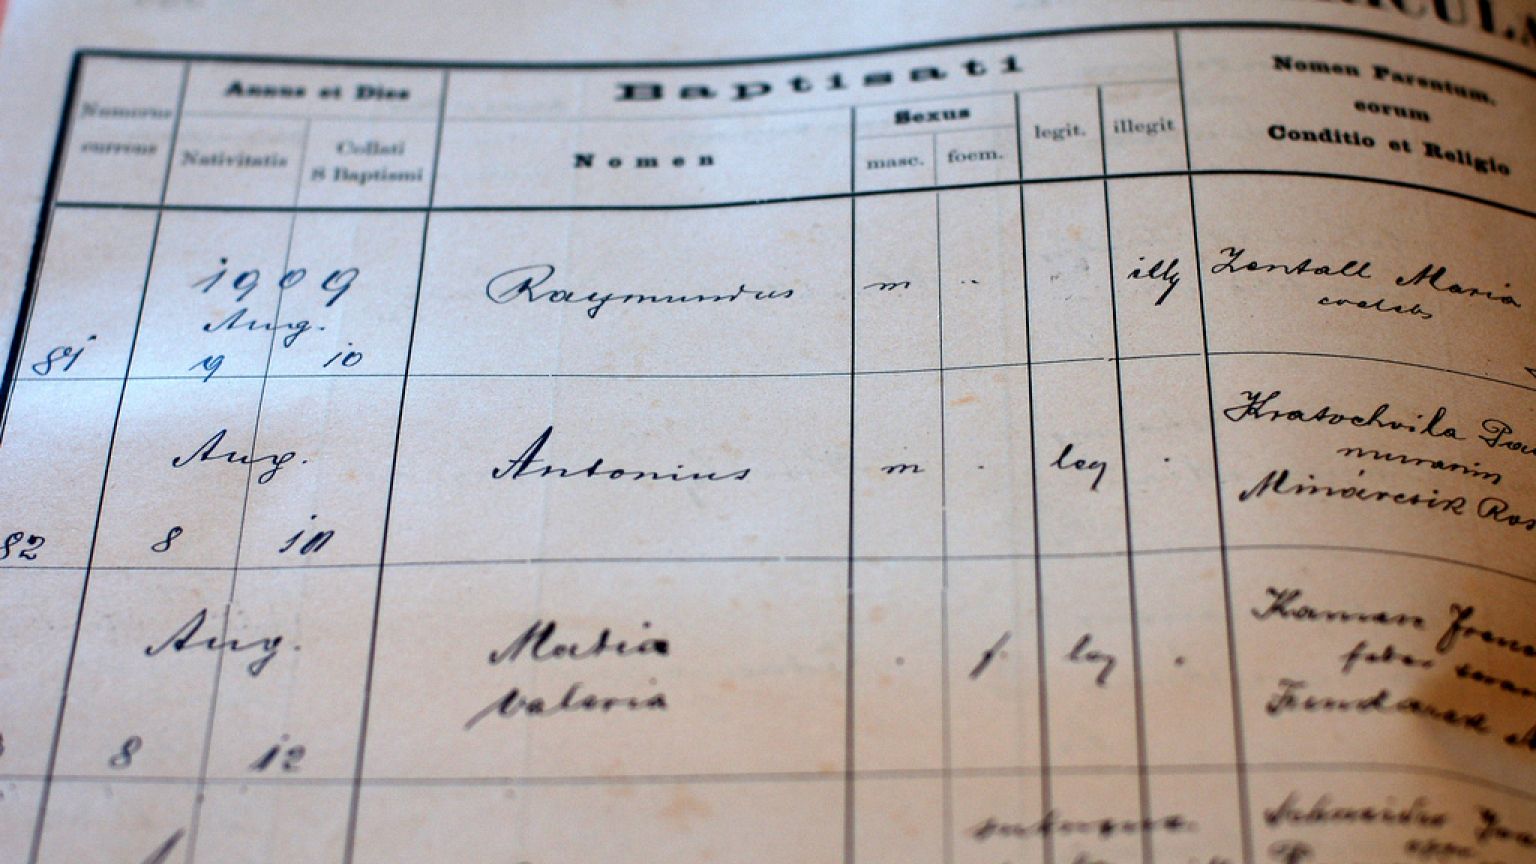 Numerus currens
Annus et Dies
Nativitatis
Collati S Baptismi
Baptisati
Nomen
Sexus
masc.
foem.
legit.
illegit
Nomen Parentum,
eorum
Conditio et Religio
81
1909
Aug.
9 10
Raymundus
m
illg
Zentall Maria
coelebs
82
Aug.
8 10
Antonius
m
leg
Kratochvila
murarius
Minárcsik
Aug.
8 12
Maria
Valeria
f
leg
Kaman
faber